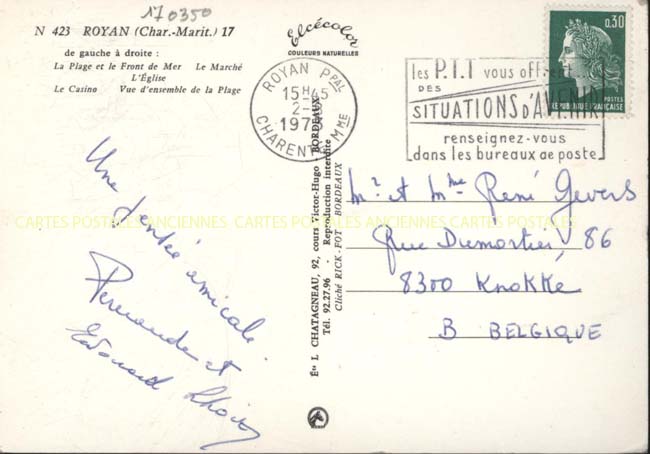 170350
N 423 ROYAN (Char.-Marit.) 17
de gauche à droite :
La Plage et le Front de Mer Le Marché
L'Église
Le Casino Vue d'ensemble de la Plage
Elcécolor
COULEURS NATURELLES
ROYAN PPAL
15H45
2-
197
CHARENTE MME
les P.T.T vous offrent
DES
SITUATIONS D'AVENIR
renseignez-vous
dans les bureaux de poste
0,30
POSTES
REPUBLIQUE FRANÇAISE
Une pensée amicale.
Fernande et
Edouard
Éts L. CHATAGNEAU, 92, cours Victor-Hugo - BORDEAUX
Tél. 92.27.96 - Reproduction interdite
Cliché RICK-FOT BORDEAUX
Mr et Mme René Gevers
Rue Dumortier, 86
8300 KNOKKE
B BELGIQUE
CARTES POSTALES ANCIENNES CARTES POSTALES ANCIENNES CARTES POSTALES ANCIENNES